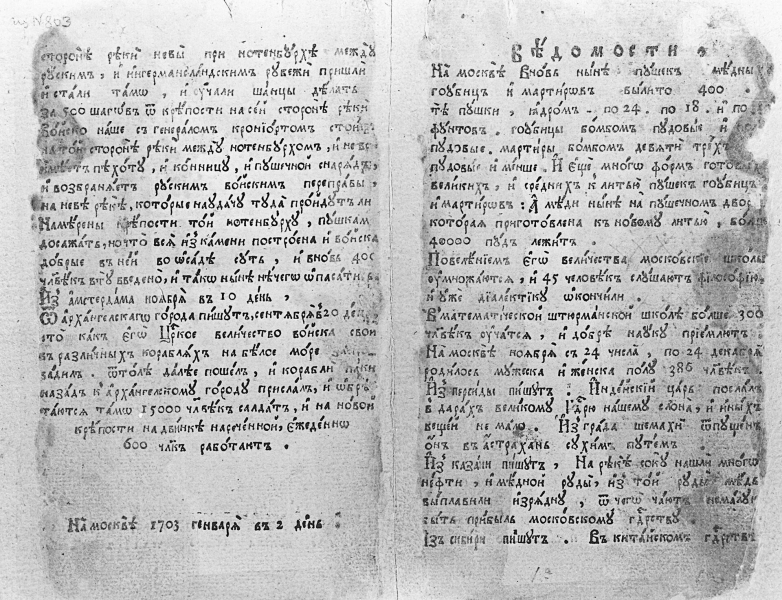 из N 803
сторонѣ рѣки невы при нотенбурхѣ между
рускимъ, и ингерманландскимъ рубежи пришли
и стали тамѡ, и ѹчали шанцы дѣлать
за 500 шагѡвъ ѿ крѣпости на сеи сторонѣ рѣки
воиско наше съ генераломъ кронїортомъ стоитъ
на тои сторонѣ рѣки между нотенбурхомъ, и не
имѣетъ пѣхоту, и конницу, и пушечной снарядъ,
и возбраняетъ рускимъ воискимъ переправы,
на невѣ рѣкѣ, которые наудачу туда пройдутъ ли
намѣрены крѣпости той нотенбурху, пушкам
досажать, но что вся из камени построена и воиска
добрые въ ней во ѡсадѣ суть, и вновь 400
члвѣкъ вту введено, и такѡ нынѣ нечегѡ ѡпасати.
Из амстердама ноября въ 10 день,
Ѿ архангелскагѡ города пишутъ, сентября в 20 день
что какъ егѡ Црское величество воиска свои
въ различныхъ корабляхъ на бѣлое море
вадилъ. ѿтолѣ далѣе пошелъ, и корабли паки
назадъ к архангелскому городу прислалъ, и ѡбрѣ
таются тамѡ 15000 члвѣкъ салдатъ, и на новой
крѣпости на двинкѣ нареченной, ежеденнѡ
600 члкъ работаютъ.
На москвѣ 1703 генваря въ 2 день
Вѣдомости.
На москвѣ вновь нынѣ пушекъ мѣдныхъ
гоубицъ и мартирѡвъ вылито 400.
тѣ пушки, ядромъ - по 24. по 18. и по
фунтовъ. гоубицы бомбомъ пудовые и
пудовые. мартиры бомбомъ девяти трехъ
пудовые и менше. И еще многѡ формъ готовыхъ
великихъ, и среднихъ к литью пушекъ гоубицъ
и мартирѡвъ: А мѣди нынѣ на пушечномъ дворѣ
которая приготовлена к новому литью, болше
40000 пудъ лежитъ.
Повелѣнїемъ егѡ величества московскїе школы
ѹмножаются, и 45 человѣкъ слушаютъ философїю
и уже дїалектїку ѡкончили.
В математической штюрманской школѣ болше 300
члвѣкъ ѹчатся, и добрѣ науку прїемлютъ
На москвѣ ноября съ 24 числа, по 24 декабря
родилось мужеска и женска полу 386 члвѣкъ.
Из персиды пишутъ. Индѣйскїй царь послалъ
в дарахъ великому Гдрю нашему слона, и иныхъ
вещей не мало. Из града шемахи ѿпущенъ
ѡнъ въ астрахань сухимъ путемъ
Из казани пишутъ, На рѣкѣ соку нашли многѡ
нефти, и мѣдной руды, из той руды мѣдь
выплавили изрядну, ѿ чегѡ чаютъ немалую
быть прибыль московскому гдрству.
Из сибири пишутъ. Въ китайскомъ гдрствѣ